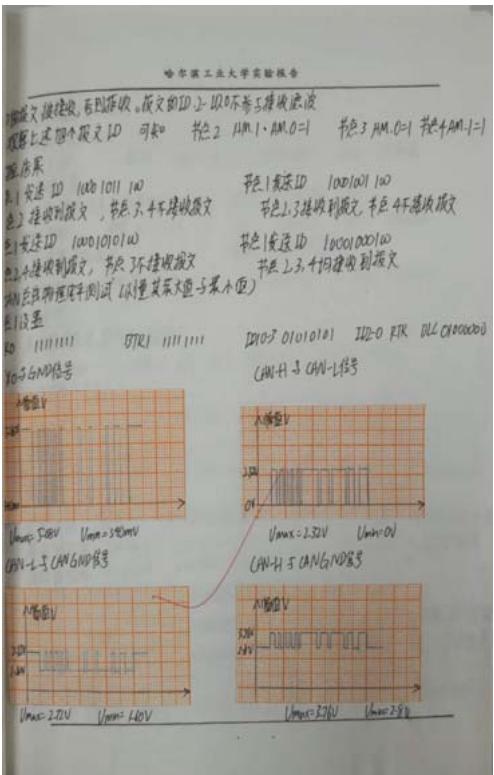 哈尔滨工业大学实验报告
报文被接收,否则拒收。报文的ID.2-ID.0不参与接收滤波
上述四个报文ID 可知 节点2 AM.1·AM.0=1 节点3 AM.0=1 节点4 AM.1=1
结果
点1发送ID 10001011 100 节点1发送ID 1000100
点2接收到报文,节点3.4不接收报文 节点2.3接收到报文,节点4不接收报文
点1发送ID 10001010100 节点1发送ID 10001000100
点2.4接收到报文,节点3不接收报文 节点2.3.4均接收到报文
CAN总线物理电平测试(测量其最大值与最小值)
点1设置
11111111 BTR1 11111111 ID10-3 01010101 ID2-0 RTR DLC 01000000
与GND信号 CAN-H与CAN-L信号
幅值V 幅值V
0V
Vmax=5.08V Vmin=340mV Vmax=2.32V Vmin=0V
CAN-L与CANGND信号 CAN-H与CANGND信号
幅值V 幅值V
Vmax=2.72V Vmin=1.60V Vmax=3.76V